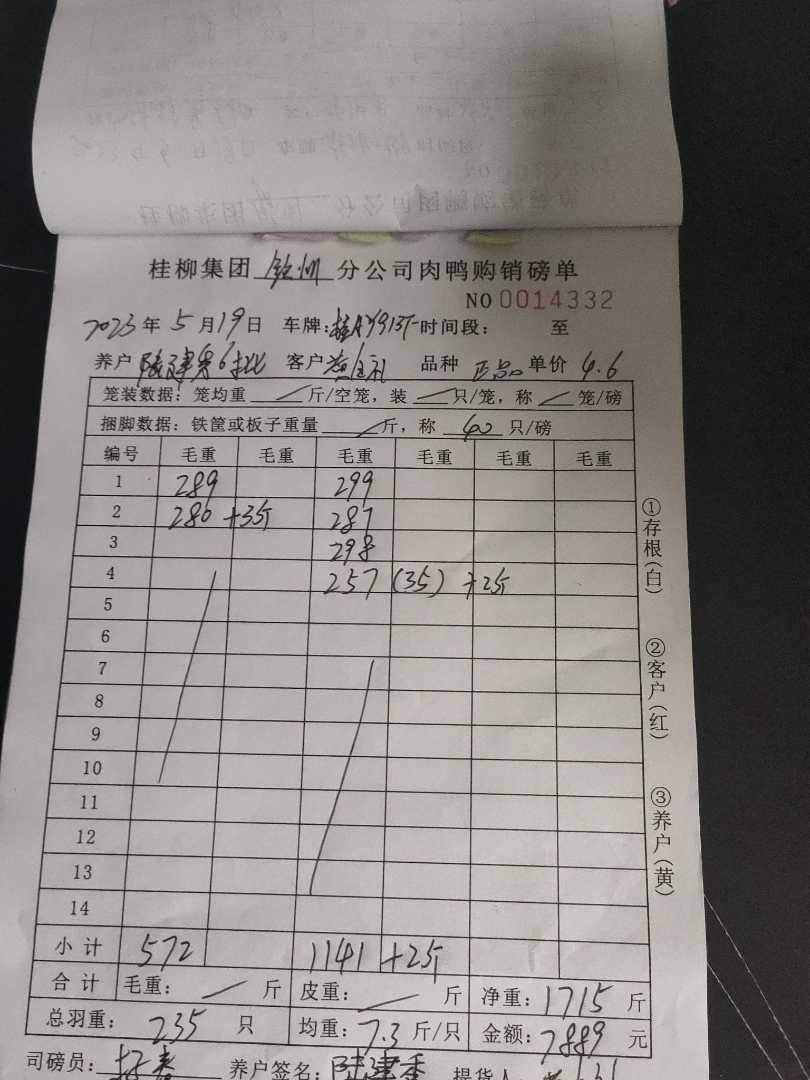 桂柳集团 钦州 分公司肉鸭购销磅单
NO 0014332
2023 年 5 月 19 日 车牌: 时间段: 至
养户 陆建 6批 客户 黄 礼 品种 正品 单价 4.6
笼装数据: 笼均重 斤/空笼, 装 只/笼, 称 笼/磅
捆脚数据: 铁筐或板子重量 斤, 称 40 只/磅
编号 毛重 毛重 毛重 毛重 毛重 毛重
1 289 299
2 280 +3斤 287
3 298
4 257 (35) +2斤
5
6
7
8
9
10
11
12
13
14
小计 572 1141 +2斤
合计 毛重: 斤 皮重: 斤 净重: 1715 斤
总羽重: 235 只 均重: 7.3 斤/只 金额: 7889 元
司磅员: 养户签名: 陆建 提货人
①存根(白)
②客户(红)
③养户(黄)